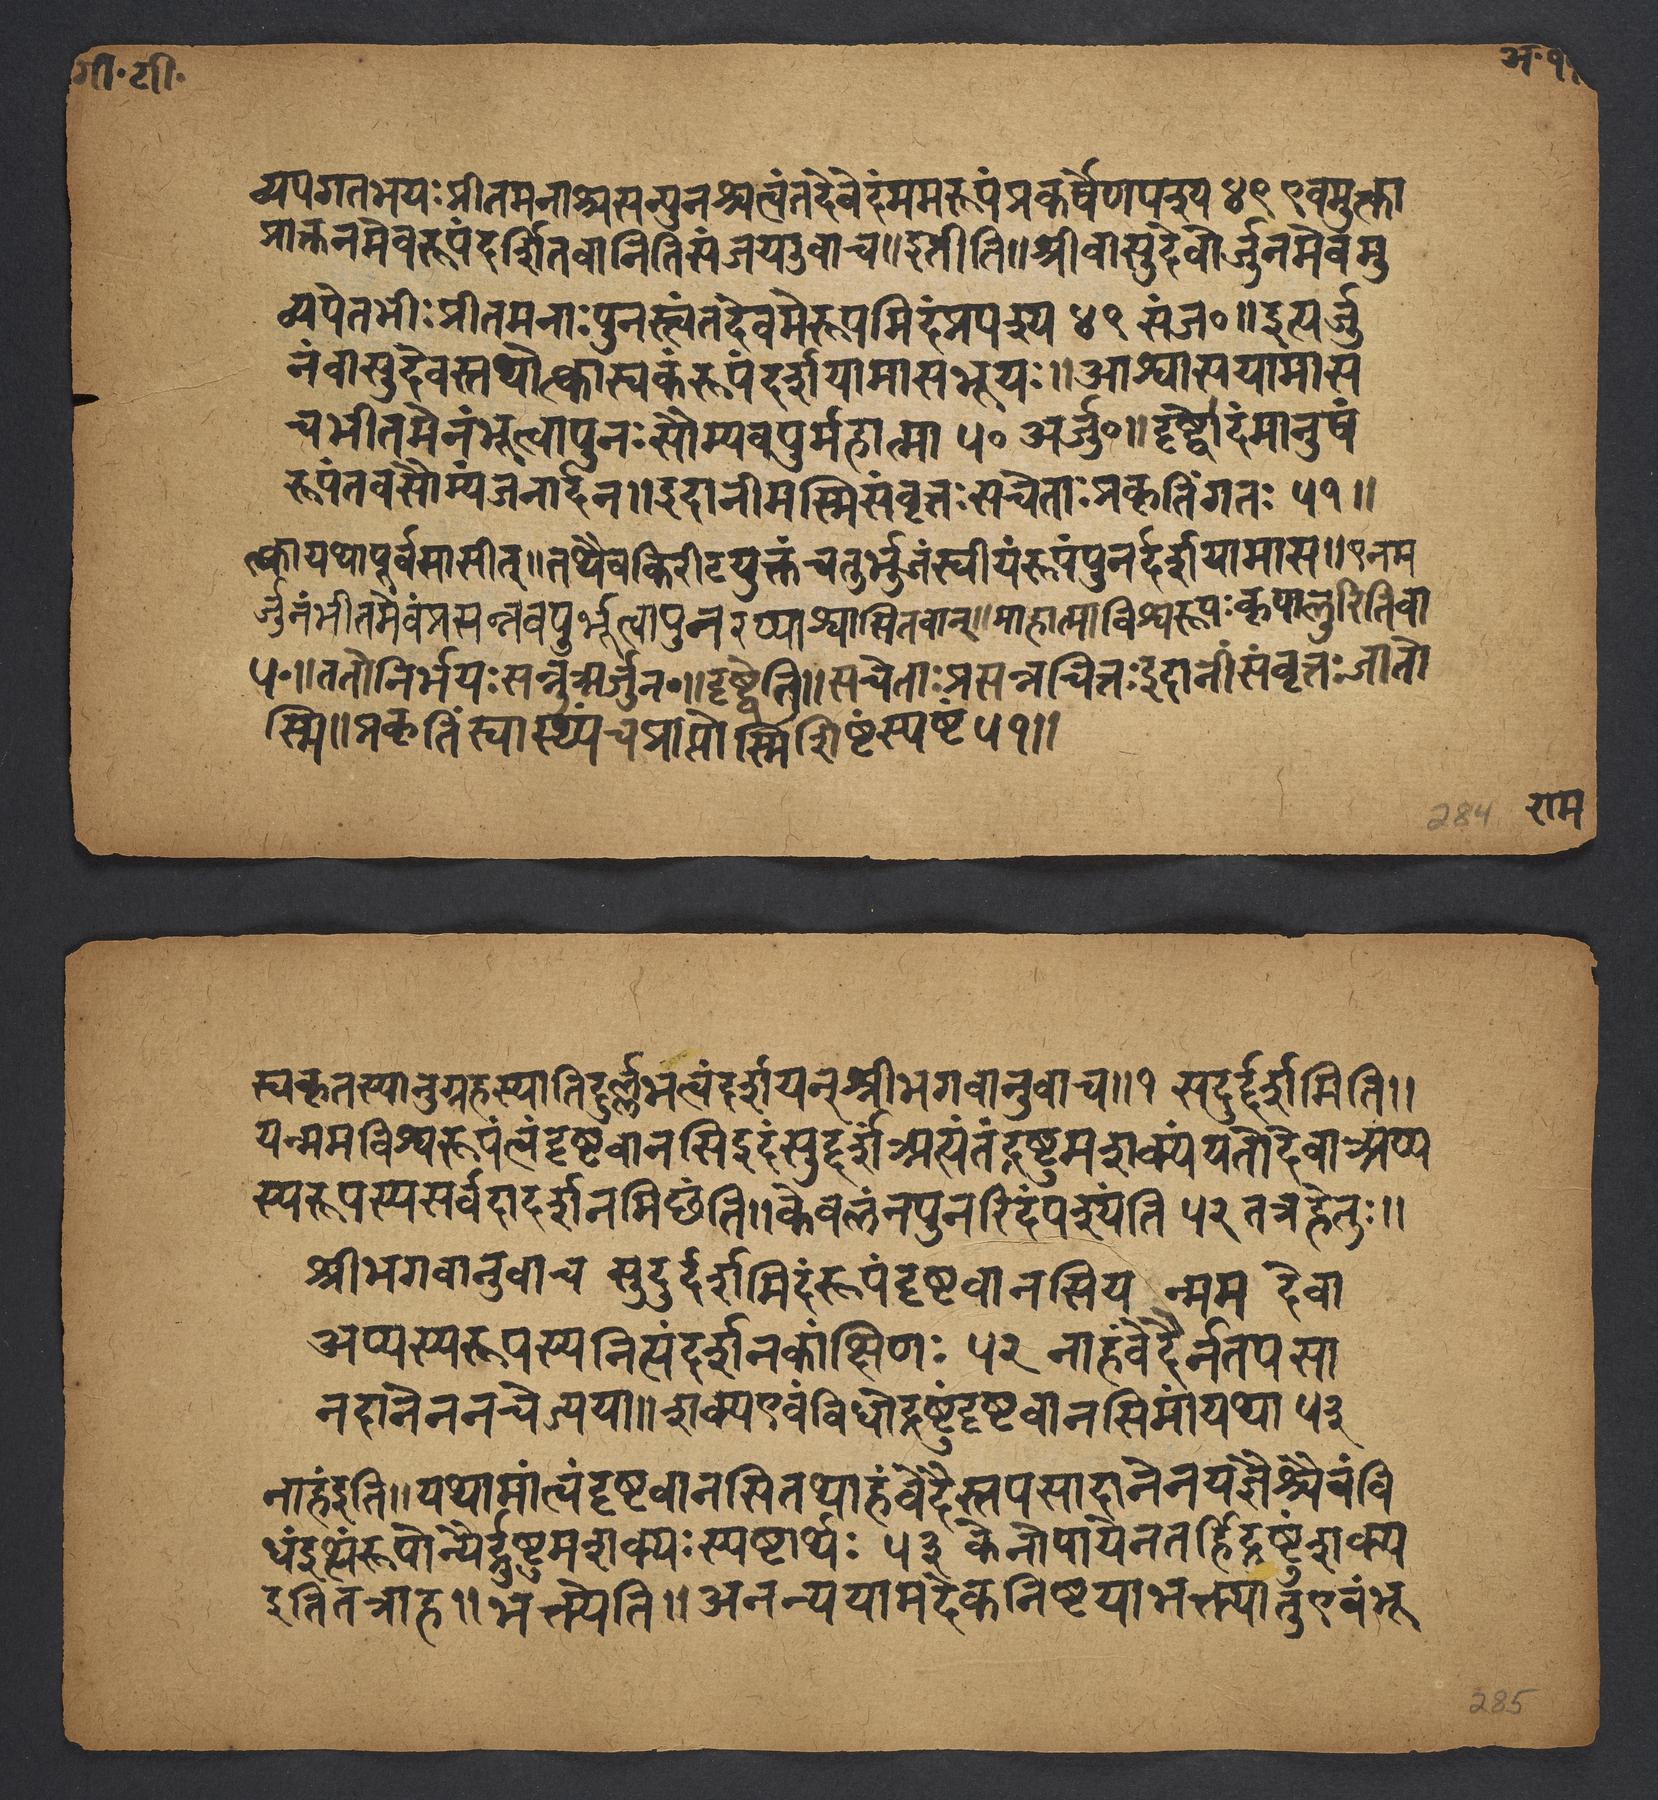 गी॰टी॰
अ॰११
व्यपगतभयःप्रीतमनाश्चसन्पुनश्चत्वंतदेवेदंममरूपंप्रकर्षेणपश्य ४९ एवमुक्त्वा
प्राक्तनमेवरूपंदर्शितवानितिसंजयउवाच॥इतीति॥श्रीवासुदेवोर्जुनमेवमु
व्यपेतभीःप्रीतमनाःपुनस्त्वंतदेवमेरूपमिदंप्रपश्य ४९ संज॰॥इत्यर्जु
नंवासुदेवस्तथोत्क्वास्वकंरूपंदर्शयामासभूयः॥आश्वासयामास
चभीतमेनंभूत्वापुनःसौम्यवपुर्महात्मा ५० अर्जु॰॥दृष्ट्वेदंमानुषं
रूपंतवसौम्यंजनार्दन॥इदानीमस्मिसंवृत्तःसचेताःप्रकृतिंगतः ५१॥
त्क्वायथापूर्वमासीत्॥तथैवकिरीटयुक्तंचतुर्भुजंस्वीयंरूपंपुनर्दर्शयामास॥एनम
र्जुनंभीतमेवंप्रसन्नवपुर्भूत्वापुनरप्याश्वासितवान्॥माहात्माविश्वरूपःकृपालुरितिवा
५॰॥ततोनिर्भयःसन्नुअर्जुन॰॥दृष्ट्वेति॥सचेताःप्रसन्नचित्तःइदानींसंवृत्तःजातो
स्मि॥प्रकृतिंस्वास्थ्यंचप्राप्तोस्मिशिष्टंस्पष्टं५१॥
284
राम
स्वकृतस्यानुग्रहस्यातिदुर्ल्लभत्वंदर्शयन्श्रीभगवानुवाच॥१ सदुर्दर्शमिति॥
यन्ममविश्वरूपंत्वंदृष्टवानसिइदंसुदुर्दर्शंअत्यंतंद्रष्टुमशक्यंयतोदेवाअप्य
स्यरूपस्यसर्वदादर्शनमिछंति॥केवलंनपुनरिदंपश्यंति ५२ तत्रहेतुः॥
श्रीभगवानुवाच सुदुर्दर्शमिदंरूपंदृष्टवानसिय न्मम देवा
अप्यस्यरूपस्यनित्यंदर्शनकांक्षिणः ५२ नाहंवेदैर्नतपसा
नदानेननचेज्यया॥शक्यएवंविधोद्रष्टुंदृष्टवानसिमांयथा ५३
नाहंइति॥यथामांत्वंदृष्टवानसितथाहंवेदैस्तपसादानेनयज्ञैश्चैवंवि
धंइत्थंरूपोन्यैर्द्रष्टुमशक्यःस्पष्टार्थः ५३ केनोपायेनतर्हिद्रष्टुंशक्य
इतितत्राह॥भक्त्येति॥अनन्ययामदेकनिष्टयाभक्त्यातुएवंभू
285